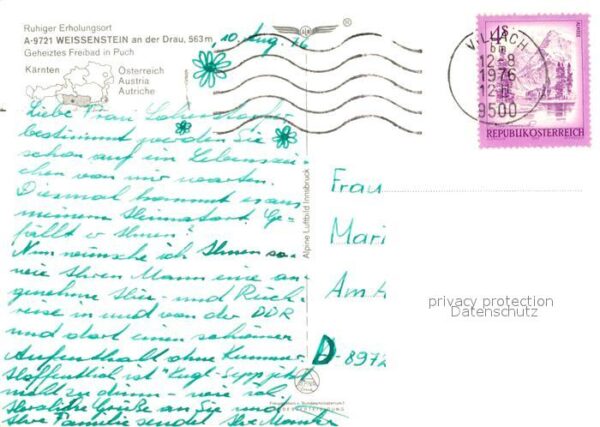 Ruhiger Erholungsort
A-9721 WEISSENSTEIN an der Drau, 563 m
Geheiztes Freibad in Puch
Kärnten
Österreich
Austria
Autriche
10. Aug. 76
Liebe Frau
bestimmt werden Sie
schon auf ein Lebenszei-
chen von mir warten.
Diesmal kommt es aus
meinem Heimatort. Ge-
fällt er Ihnen?
Nun wünsche ich Ihnen so-
wie Ihrem Mann eine an-
genehme Hin- und Rück-
reise in und von der DDR
und dort einen schönen
Aufenthalt ohne Kummer.
Hoffentlich ist "Kugl-Sepp" jetzt
nicht zu dünn -
Herzliche Grüße an Sie und
Ihre Familie sendet Ihre
Alpine Luftbild Innsbruck
VILLACH
12-8
1976
9500
4 S
REPUBLIK ÖSTERREICH
Frau
Mari
Am H
D-8972
privacy protection
Datenschutz